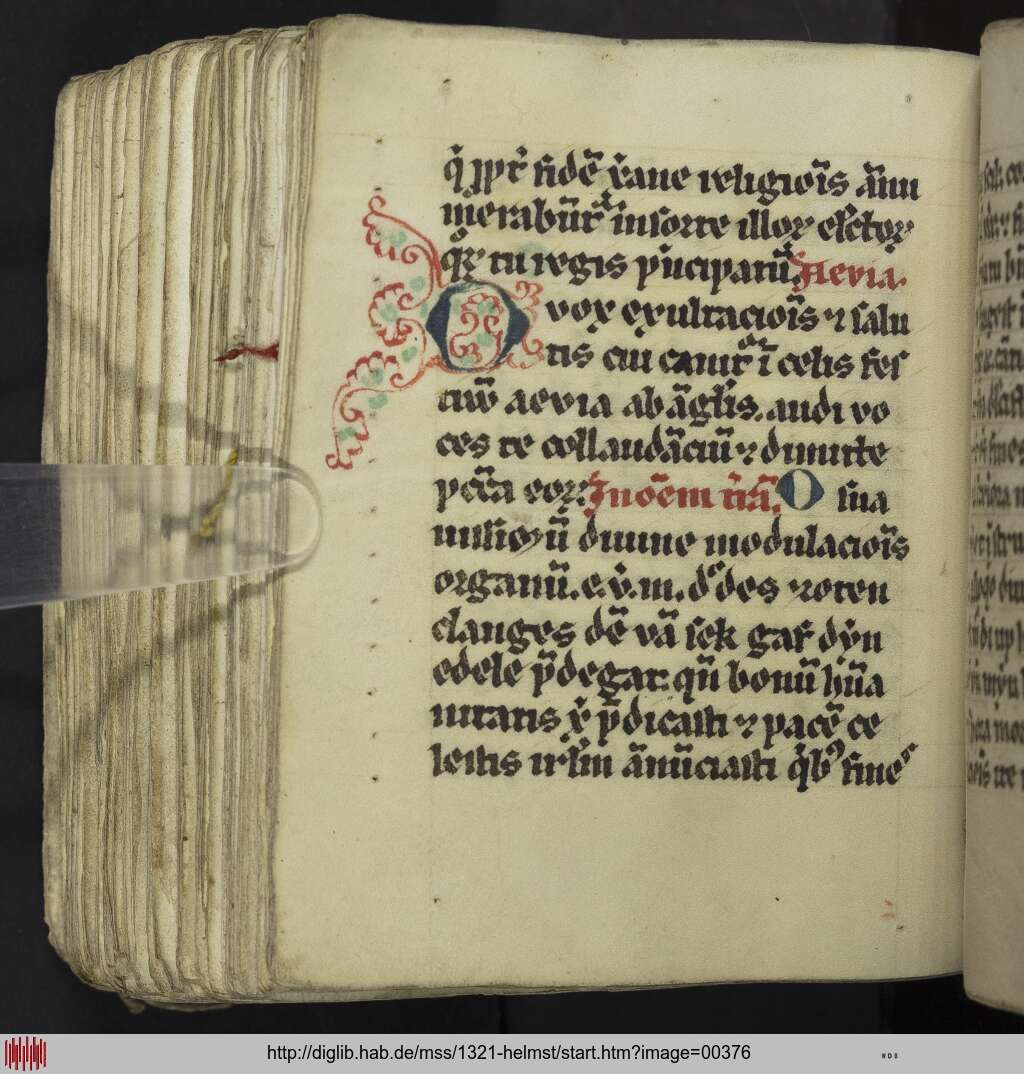 q̓ ꝓpt̉ fidē x̓ane religiōis ām
m̄erabūt̉ in sorte illoꝝ eſctoꝝ
qͦꝝ tu regis p̓ncipatū. Aevia.
O vox exultaciōis ⁊ salu
tis cui canitᷣ ī celis fes
tiuū aevia ab āglis. audi vo
ces te collaudāciū ⁊ dimitte
pctā eoꝝ. In oēm t̓iā. O sua
uisſiōꝝū diuine modulaciōis
organū. e. v̓. m. dᷤ des roten
clanges dē vā sek gaf dȳn
edele p̄degat. qn̄ bonū hūa
nitatis x̓ p̄dicasti ⁊ pacē ce
lestis irl̓m ānūciasti q̓bꝰ fineˢ
http://diglib.hab.de/mss/1321-helmst/start.htm?image=00376